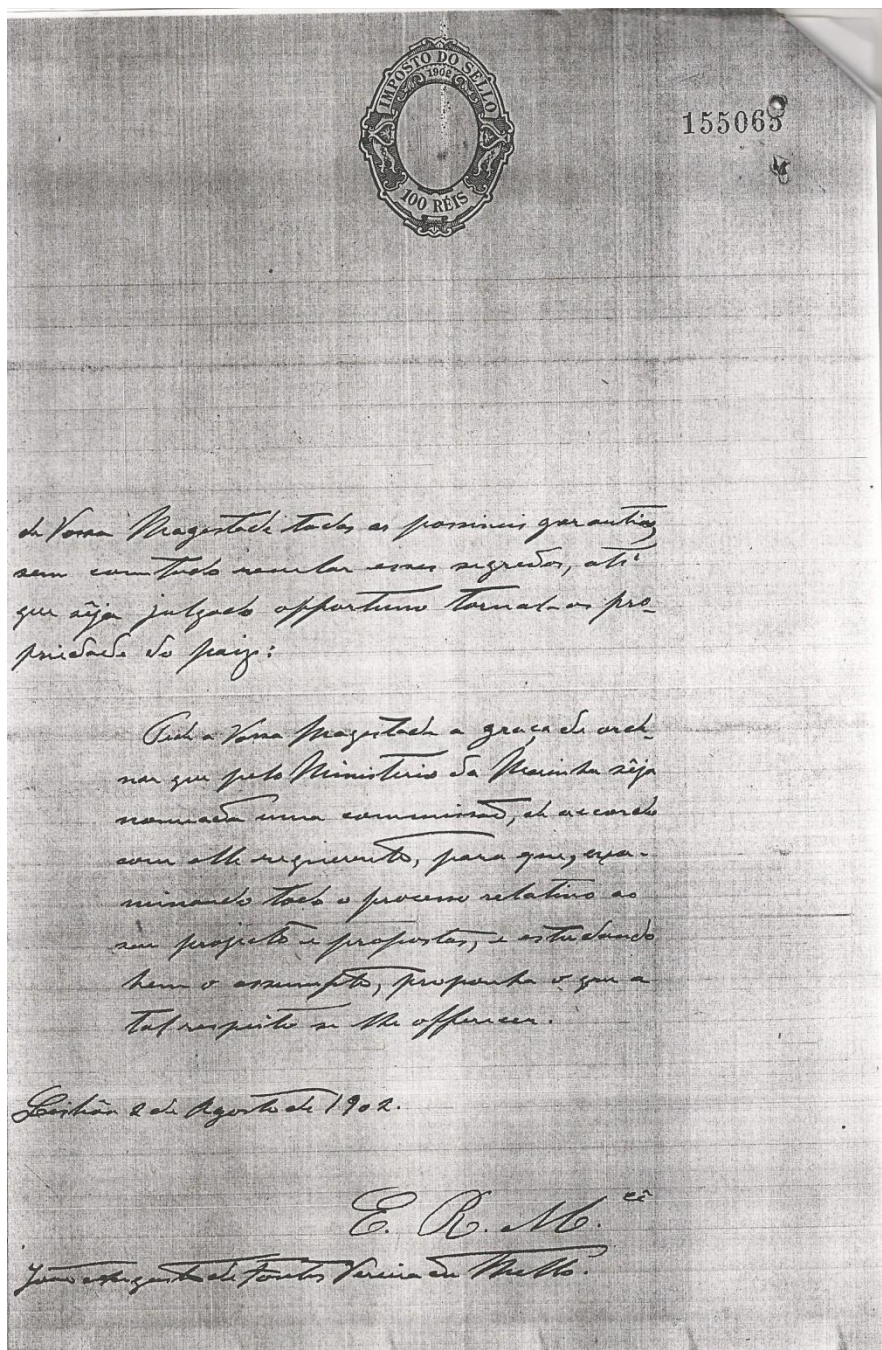 IMPOSTO DO SELLO
1902
100 RÉIS
155065
de Vossa Magestade todas as possiveis garantias,
sem comtudo revelar esses segredos, até
que sêja julgado opportuno tornal-os pro-
priedade do paiz:
Pede a Vossa Magestade a graça de orde-
nar que pelo Ministerio da Marinha sêja
nomeada uma commissão, de accordo
com elle requerente, para que, exa-
minando todo o processo relativo ao
seu projecto e propostas, e estudando
bem o assumpto, proponha o que a
tal respeito se lhe offerecer.
Lisbôa 2 de Agosto de 1902.
E. R. M.cê
João Augusto de Fontes Pereira de Mello.